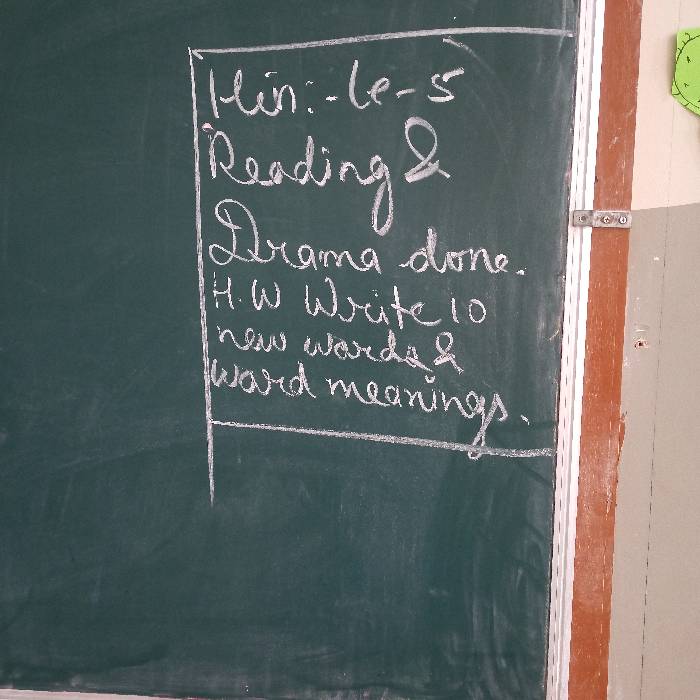 Hin:-le-5
Reading &
Drama done.
H.W Write 10
new words &
word meanings.